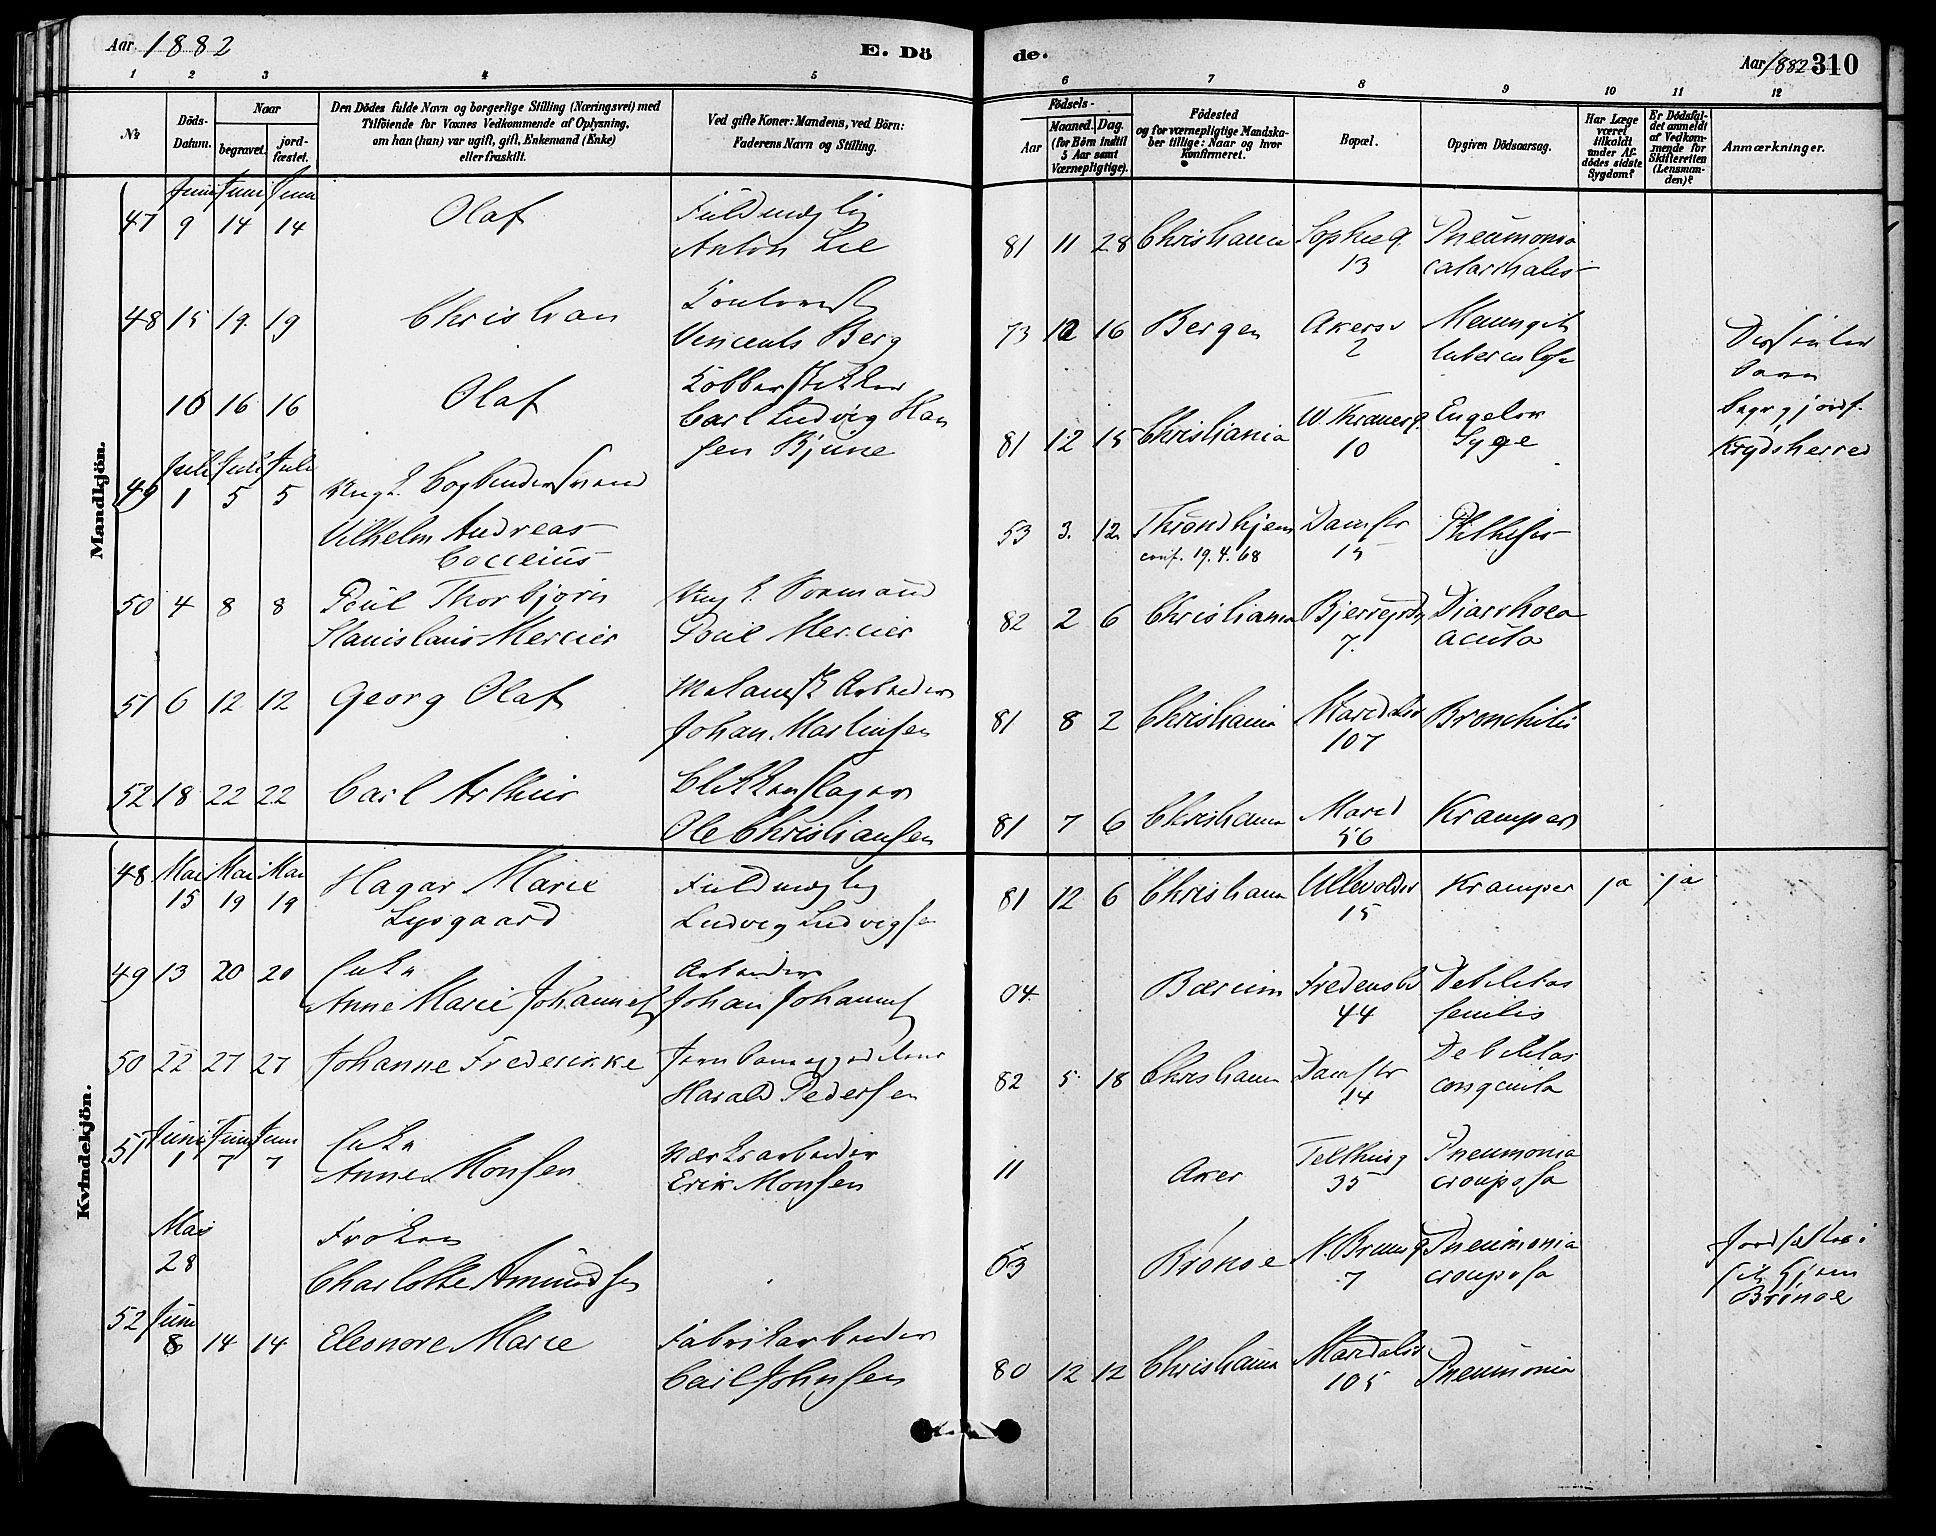 Aar 1882
E. Dö
de.
Aar 1882 310
1 2 3 4 5 6 7 8 9 10 11 12
No
Döds-Datum.
Naar
begravet.
jord-fæstet.
Den Dödes fulde Navn og borgerlige Stilling (Næringsvei) med
Tilföiende for Voxnes Vedkommende af Oplysning,
om han (hun) var ugift, gift, Enkemand (Enke)
eller fraskilt.
Ved gifte Koner: Mandens, ved Börn:
Faderens Navn og Stilling.
Födsels-
Aar
Maaned. Dag.
(for Börn indtil
5 Aar samt
Værnepligtige).
Födested
og for værnepligtige Mandska-
ber tillige: Naar og hvor
Konfirmeret.
Bopæl.
Opgiven Dödsaarsag.
Har Læge
været
tilkaldt
under Af-
dödes sidste
Sygdom?
Er Dödsfal-
det anmeldt
af Vedkom-
mende for
Skifteretten
(Lensman-
den)?
Anmærkninger.
Mandkjön.
Juni Juni Juni
47 9 14 14 Olaf Fuldmægtig
Anton Lie
81 11 28 Christiania Sophieg.
13
Pneumonia
catarrhalis
48 15 19. 19 Christian
Vincents Berg
73 10 16 Bergen Akersv
2
Meningit
tuberculosa
10 16 16 Olaf Kobberstikker
Carl Ludvig Han
sen Bjune
81 12 15 Christiania W. Thranesg.
10
Engelsk
Syge
Barn
begr. g jordf.
Krydsherred
Juli Juli Juli
49 1 5 5 Ungk. Bogbindersvend
Vilhelm Andreas
Cocceius
53 3. 12. Throndhjem
conf. 19.4.68
Damstr
15
Phthisis
50 4 8 8 Poul Thorbjørn
Stanislaus Mercier
Ungk. Formand
Poul Mercier
82 2 6 Christiania Bjerregdg
7.
Diarrhoea
acuta
51 6 12 12 Georg Olaf
Mekanisk Arbeider
Johan Martinsen
81 8 2 Christiania Maridalsv
107
Bronchitis
52 18 22 22 Carl Arthur
Blikkenslager
Ole Christiansen
81 7 6 Christiania Marid
56
Kramper
Kvindekjön.
Mai Mai Mai
48 15 19 19 Hagar Marie
Lysgaard
Fuldmægtig
Ludvig Ludvigsen
81 12 6 Christiania Ullevoldsv
15
Kramper ja ja
49 13 20 20 Enke
Anne Marie Johannes
Arbeider
Johan Johannes
04. Bærum Fredensbv
44
Debilitas
senilis
50 22 27 27 Johanne Frederikke
Harald Pedersen
82 5 18 Christiania Damstr
14
Debilitas
congenita
Juni Juni Juni
51 1 7 7 Enke
Anne Monsen
Værksarbeider
Erik Monsen
11 Aker Telthusg
35
Pneumonia
crouposa
Mai
28
Frøken
Charlotte Amundsen
63 Brønøe N. Brung
7
Pneumonia
crouposa
Jordfæstes i
sit Hjem
Brønøe
Juni
52 8 14 14 Eleonore Marie
Fabrikarbeider
Carl Johnsen
80 12 12 Christiania Maridalsv
105
Pneumonia